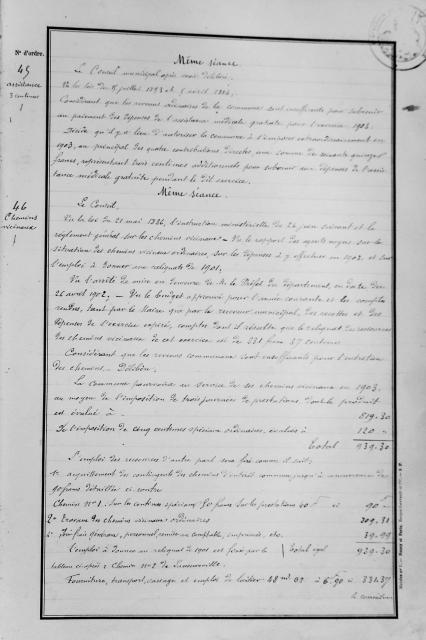 N° d'ordre.
Même séance
45
assistance
3 centimes
Le Conseil municipal après avoir délibéré.
Vu les lois du 15 juillet 1893 et 5 avril 1884,
Considérant que les revenus ordinaires de la commune sont insuffisants pour subvenir
au paiement des dépenses de l'assistance médicale gratuite pour l'exercice 1903.
Décide qu'il y a lieu d'autoriser la commune à s'imposer extraordinairement en
1903, au principal des quatre contributions directes, une somme de soixante quinze
francs, représentant trois centimes additionnels pour subvenir aux dépenses de l'assis-
tance médicale gratuite pendant le dit exercice.
Même séance.
46
Chemins
vicinaux
Le Conseil,
Vu la loi du 21 mai 1836, l'instruction ministérielle du 24 juin suivant et le
règlement général sur les chemins vicinaux - Vu le rapport des agents voyers sur la
situation des chemins vicinaux ordinaires, sur les dépenses à y effectuer en 1902 et sur
l'emploi à donner aux reliquats de 1901,
Vu l'arrêté de mise en demeure de M. le Préfet du département, en date du
26 avril 1902, - Vu le budget approuvé pour l'année courante et les comptes
rendus, tant par le Maire que par le receveur municipal, des recettes et des
dépenses de l'exercice expiré, comptes dont il résulte que le reliquat des ressources
des chemins vicinaux de cet exercice est de 331 francs 37 centimes
Considérant que les revenus communaux sont insuffisants pour l'entretien
des chemins, - Délibère:
La commune pourvoira au service de ses chemins vicinaux en 1903,
au moyen de l'imposition de trois journées de prestations, dont le produit
est évalué à - 819.30
De l'imposition de cinq centimes spéciaux ordinaires, évalués à 120 "
Total 939.30
L'emploi des ressources d'autre part sera fait comme il suit:
1° acquittement des contingents des chemins d'intérêt commun jusqu'à concurrence de
90 francs détaillés ci contre
Chemin N° 1. Sur les centimes spéciaux 50 francs Sur les prestations 40 f ci 90 "
2° Travaux des chemins vicinaux ordinaires 809.31
3° frais généraux, personnel, remises au comptable, imprimés, etc. 39.99
Total égal 939.30
L'emploi à donner au reliquat de 1901 est fixé par le
tableau ci après: Chemin N° 2 de
Fourniture, transport, cassage et emploi de 48 m 03 à 6f90 = 331.37
le conseil